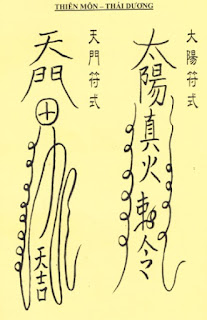 THIÊN MÔN – THÁI DƯƠNG
大陽符式
太陽真火勅令
天門符式
天門
天吉